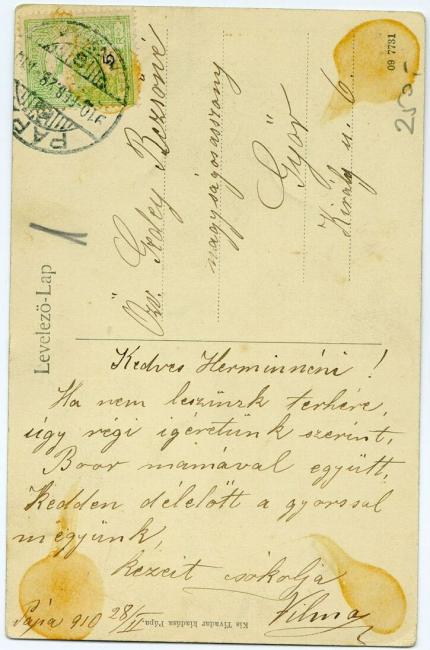 Levelező-Lap
09 7731
250,-
1
PÁPA
910 FEB. 28
Özv.
nagyságos asszony
Győr
Király u. 6.
Kedves Herminnéni!
Ha nem leszünk terhére,
úgy régi igéretünk szerint,
Boor mamával együtt,
kedden délelőtt a gyorssal
megyünk,
kézeit csókolja
Vilma
Pápa 910 28/II
Kis Tivadar kiadása Pápa